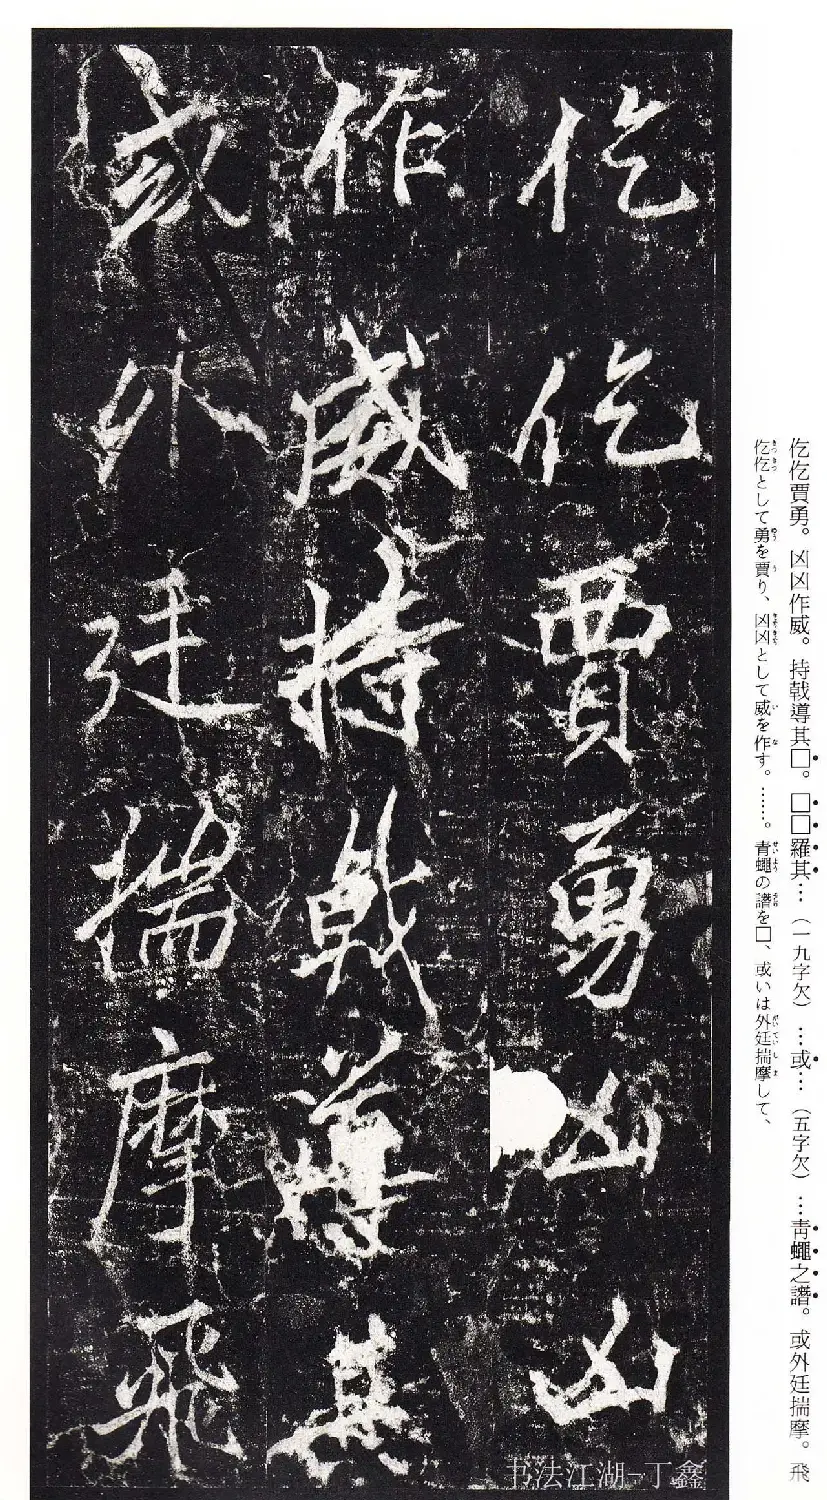 仡仡賈勇凶凶
作威持戟導其
或外廷揣摩飛
仡仡賈勇。凶凶作威。持戟導其□。□□羅其…（一九字欠）…或…（五字欠）…青蠅之譖。或外廷揣摩。飛
仡仡として勇を賈り、凶凶として威を作す。……。青蠅の譖を□、或いは外廷揣摩して、
书法江湖-丁鑫